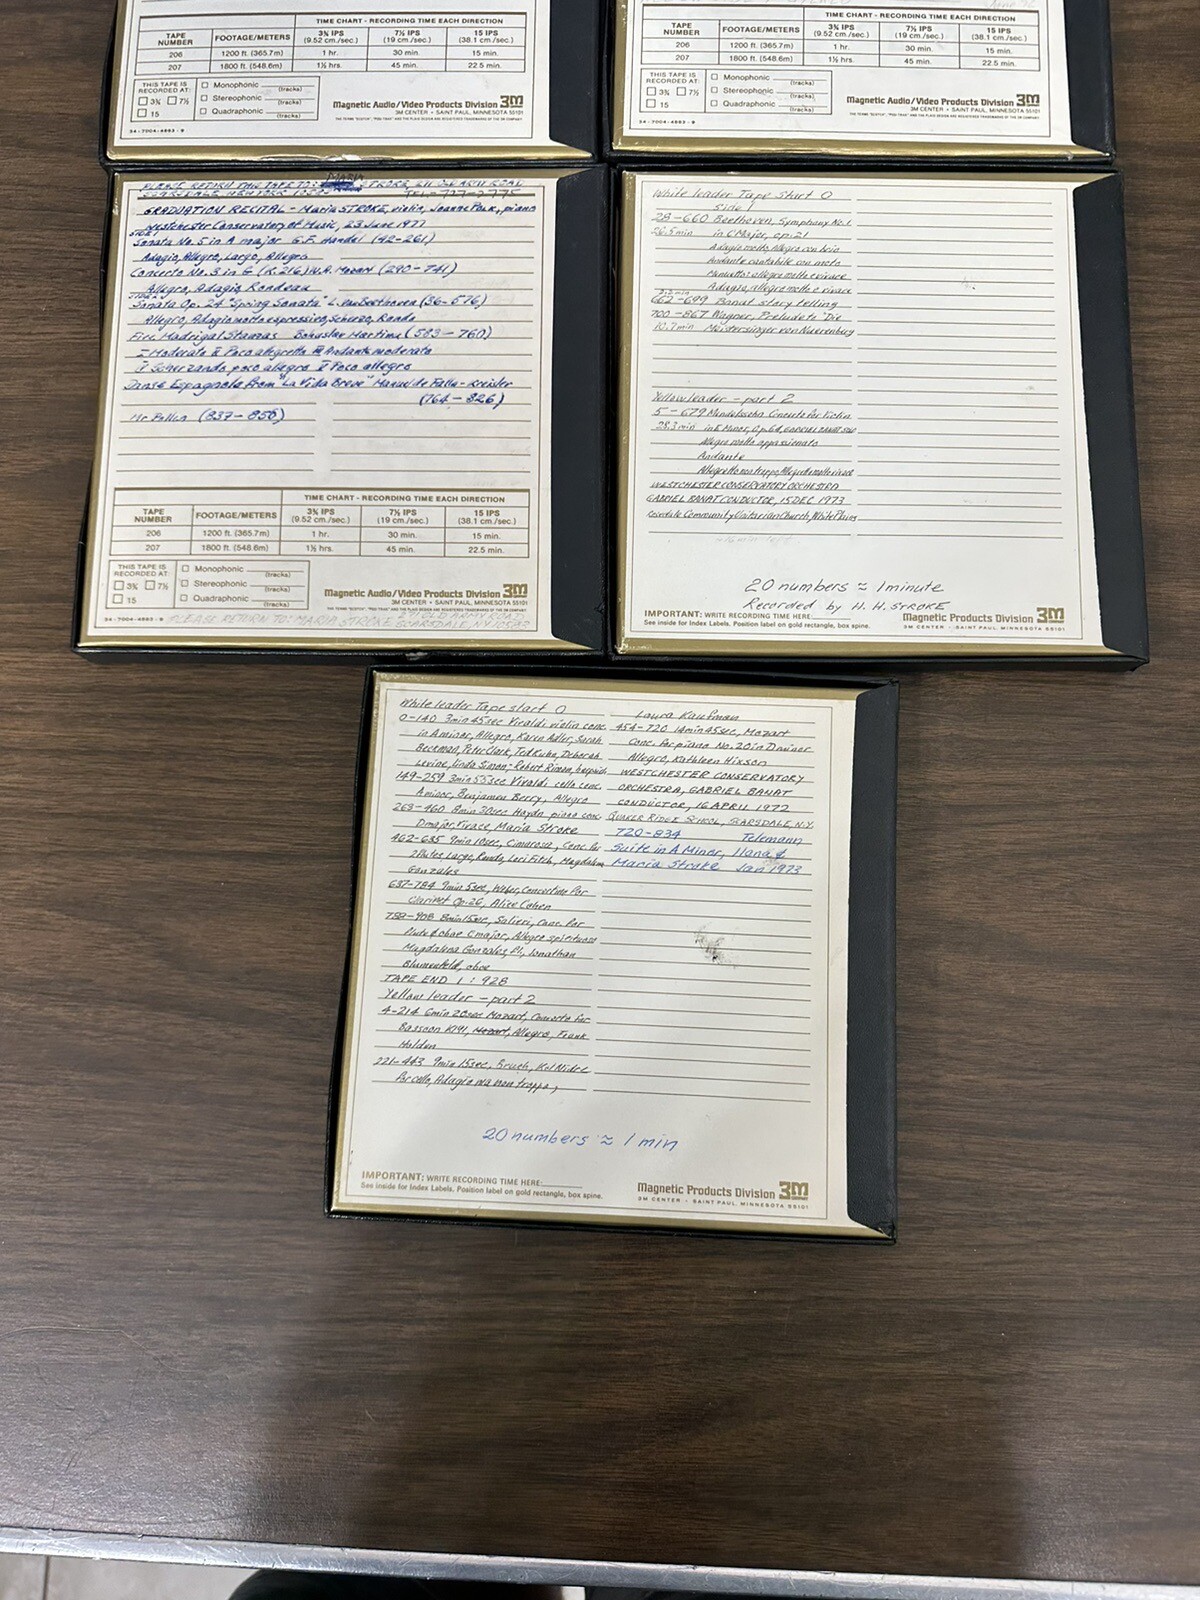 TIME CHART - RECORDING TIME EACH DIRECTION
TAPE NUMBER FOOTAGE/METERS 3¾ IPS (9.52 cm./sec.) 7½ IPS (19 cm./sec.) 15 IPS (38.1 cm./sec.)
206 1200 ft. (365.7m) 1 hr. 30 min. 15 min.
207 1800 ft. (548.6m) 1½ hrs. 45 min. 22.5 min.
THIS TAPE IS RECORDED AT:
3¾ 7½
15
Monophonic (tracks)
Stereophonic (tracks)
Quadraphonic (tracks)
Magnetic Audio/Video Products Division 3M
3M CENTER • SAINT PAUL, MINNESOTA 55101
34-7004-4893-9
TIME CHART - RECORDING TIME EACH DIRECTION
TAPE NUMBER FOOTAGE/METERS 3¾ IPS (9.52 cm./sec.) 7½ IPS (19 cm./sec.) 15 IPS (38.1 cm./sec.)
206 1200 ft. (365.7m) 1 hr. 30 min. 15 min.
207 1800 ft. (548.6m) 1½ hrs. 45 min. 22.5 min.
THIS TAPE IS RECORDED AT:
3¾ 7½
15
Monophonic (tracks)
Stereophonic (tracks)
Quadraphonic (tracks)
Magnetic Audio/Video Products Division 3M
3M CENTER • SAINT PAUL, MINNESOTA 55101
34-7004-4893-9
PLEASE RETURN THIS TAPE TO: MARIA STROKE, 271 OLD ARMY ROAD
GRADUATION RECITAL - Maria STROKE, violin, Joanne Polk, piano
Westchester Conservatory of Music, 23 June 1977
SIDE 1
Sonata No. 5 in A major G.F. Handel (42-261)
Adagio, Allegro, Largo, Allegro
Concerto No. 3 in G (K. 216) W.A. Mozart (290-741)
Allegro, Adagio, Rondeau
Sonata Op. 24 "Spring Sonata" L. van Beethoven (36-576)
Allegro, Adagio molto espressivo, Scherzo, Rondo
Five Madrigal Stanzas Bohuslav Martinu (583-760)
I Moderato II Poco allegretto III Andante moderato
IV Scherzando poco allegro V Poco allegro
Danse Espagnole from "La Vida Breve" Manuel de Falla-Kreisler
(764-826)
Mr. (837-856)
TIME CHART - RECORDING TIME EACH DIRECTION
TAPE NUMBER FOOTAGE/METERS 3¾ IPS (9.52 cm./sec.) 7½ IPS (19 cm./sec.) 15 IPS (38.1 cm./sec.)
206 1200 ft. (365.7m) 1 hr. 30 min. 15 min.
207 1800 ft. (548.6m) 1½ hrs. 45 min. 22.5 min.
THIS TAPE IS RECORDED AT:
3¾ 7½
15
Monophonic (tracks)
Stereophonic (tracks)
Quadraphonic (tracks)
Magnetic Audio/Video Products Division 3M
3M CENTER • SAINT PAUL, MINNESOTA 55101
34-7004-4893-9 PLEASE RETURN TO: MARIA STROKE 271 OLD ARMY ROAD SCARSDALE, NY 10583
White leader Tape Start 0
Side 1
28-660 Beethoven, Symphony No. 1
26.5 min in C Major, op. 21
Adagio molto, Allegro con brio
Andante cantabile con moto
Menuetto: allegro molto e vivace
Adagio, allegro molto e vivace
662-699 Banat story telling
700-867 Wagner, Prelude to "Die
10.7 min Meistersinger von Nuerenburg
Yellow leader - part 2
5-679 Mendelssohn Concerto for Violin
28.3 min in E Minor, Op. 64, GABRIEL BANAT
Allegro molto appassionato
Andante
Allegretto non troppo, Allegretto molto vivace
WESTCHESTER CONSERVATORY ORCHESTRA
GABRIEL BANAT CONDUCTOR, 15 DEC 1973
Community Unitarian Church, White Plains
20 numbers ≈ 1 minute
Recorded by H. H. STROKE
IMPORTANT: WRITE RECORDING TIME HERE:
See inside for Index Labels. Position label on gold rectangle, box spine.
Magnetic Products Division 3M
3M CENTER • SAINT PAUL, MINNESOTA 55101
White leader Tape start 0
0-140 3min 45sec Vivaldi violin conc.
in A minor, Allegro, Karen Adler, Sarah
Beckman, Peter Clark, Ted Kuhn, Deborah
Levine, Linda Simon, Robert Rimon, harpsich
149-259 3min 55sec Vivaldi cello conc.
A minor, Benjamin Berry, Allegro
268-460 8min 30sec Haydn piano conc.
D major, Vivace, Maria Stroke
462-635 9min 10sec, Cimarosa, Conc. for
2 flutes, Largo, Rondo, Lori Fitch, Magdalena
Gonzales
637-784 9min 5sec, Weber, Concertino for
Clarinet Op. 26, Alice Cohen
788-908 8min 15sec, Salieri, Conc. for
flute & oboe C major, Allegro spirituoso
Magdalena Gonzales, fl., Jonathan
Blumenfeld, oboe
TAPE END 1: 928
Yellow leader - part 2
4-214 6min 20sec Mozart, Concerto for
Bassoon K191, Mozart, Allegro, Frank
Holden
221-443 9min 15sec, Bruch, Kol Nidre
for cello, Adagio ma non troppo,
Laura Kaufman
454-720 14min 45sec, Mozart
Conc. for piano No. 20 in D minor
Allegro, Kathleen Hixson
WESTCHESTER CONSERVATORY
ORCHESTRA, GABRIEL BANAT
CONDUCTOR, 16 APRIL 1972
QUAKER RIDGE SCHOOL, SCARSDALE, N.Y.
720-834 Telemann
Suite in A Minor, Ilana &
Maria Stroke Jan 1973
20 numbers ≈ 1 min
IMPORTANT: WRITE RECORDING TIME HERE:
See inside for Index Labels. Position label on gold rectangle, box spine.
Magnetic Products Division 3M
3M CENTER • SAINT PAUL, MINNESOTA 55101